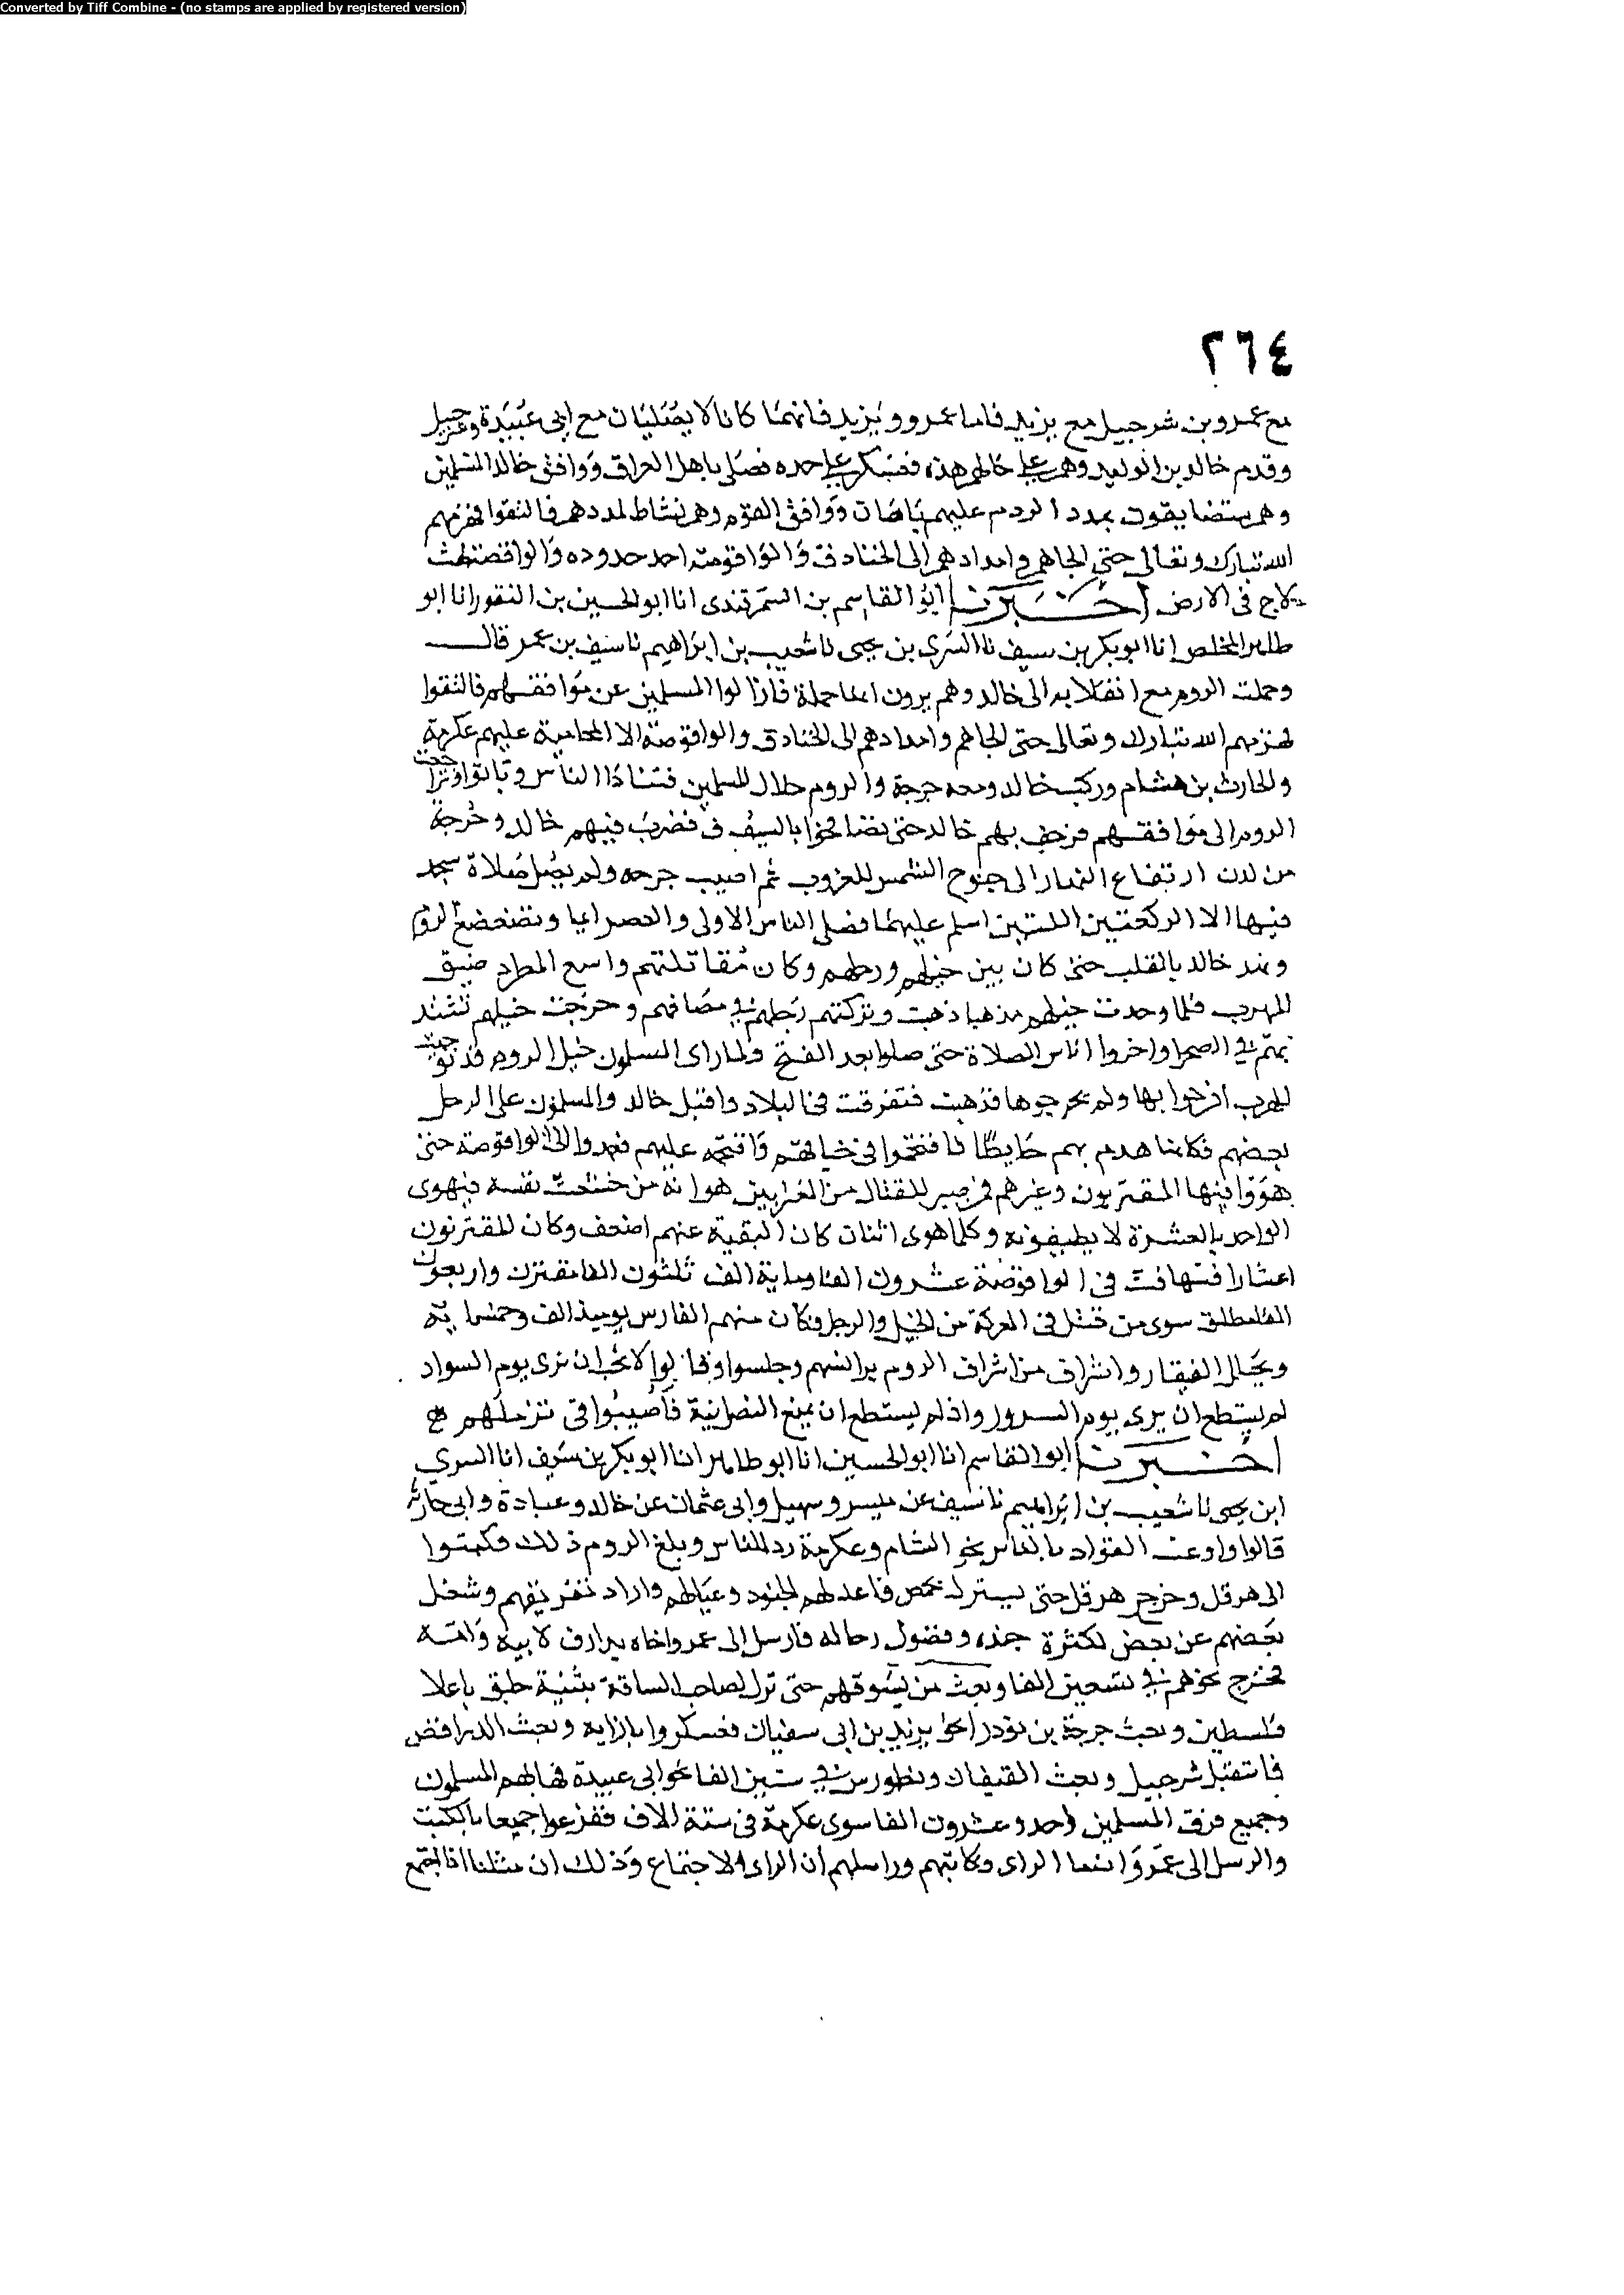 Converted by Tiff Combine - (no stamps are applied by registered version)
٢٦٤
مع عمرو بن شرحبيل مع يزيد فاما عمرو ويزيد فانهما كانا لا يصليان مع ابي عبيدة وشرحبيل
وقدم خالد بن الوليد وهم على حالهم هذه فعسكر على حده فصلى باهل العراق ووافق خالد المسلمين
وهم متضايقون بمدد الروم عليهم باهان ووافق القوم وهم نشاط لمددهم فالتقوا فهزمهم
الله تبارك وتعالى حتى الجاهم وامدادهم الى الخنادق والواقوصة احد حدوده
في الارض اخبرنا ابو القاسم بن السمرقندي انا ابو الحسين بن النقور انا ابو
طاهر المخلص انا ابو بكر بن سيف نا السري بن يحيى نا شعيب بن ابراهيم نا سيف بن عمر قال
وحملت الروم مع انفلابه الى خالد وهم يرون انها حملة فازالوا المسلمين عن موافقهم فالتقوا
فهزمهم الله تبارك وتعالى حتى الجاهم وامدادهم الى الخنادق والواقوصة الا المحامية عليهم عكرمة
والحارث بن هشام وركب خالد ومعه جرجة والروم خلال المسلمين فتنادا الناس وثابوا وتراجعت
الروم الى موافقهم فزحف بهم خالد حتى تصافحوا بالسيوف فضرب فيهم خالد وجرجة
من لدن ارتفاع النهار الى جنوح الشمس للغروب ثم اصيب جرجه ولم يصل صلاة سجد
فيها الا الركعتين اللتين اسلم عليهما فصلى الناس الاولى والعصر ايما وتضعضع الروم
ونهد خالد بالقلب حتى كان بين خيلهم ورجلهم وكان مقاتلتهم واسع المطرد ضيق
المهرب فلما وجدت خيلهم مذهبا ذهبت وتركتهم رجلهم في مصافهم وخرجت خيلهم تشتد
بهم في الصحرا واخروا الناس الصلاة حتى صلوا بعد الفتح ولما راى المسلمون خيل الروم قد توجهت
للهرب افرجوا بها ولم يحرجوها فذهبت فتفرقت في البلاد واقبل خالد والمسلمون على الرجل
بعضهم فكانما هدم بهم حايطا فاقتحموا في خنادقهم واقتحمه عليهم فعمدوا الى الواقوصة حتى
هووا فيها المقترنون وغيرهم فمن صبر للقتال من المقربين هوا به من خشعت نفسه فيهوى
الواحد بالعشرة لا يطيقونه وكلما هوى اثنان كان البقية عنهم اضعف وكان المقترنون
اعشارا فتهافت في الواقوصة عشرون الفا ومائة الف ثلثون الفا مقترن واربعون
الفا مطلق سوى من قتل في المعركة من الخيل والرجل فكان سهم الفارس يوميذ الف وخمسماية
وتجلل الفيقار واشراف من اشراف الروم برانسهم وجلسوا وقالوا لا نحب ان نرى يوم السواد
لم يستطع ان يرى يوم السرور واذ لم يستطع ان يمنع النصرانية فاصيبوا في تزملهم
اخبرنا ابو القاسم انا ابو الحسين انا ابو طاهر انا ابو بكر بن سيف انا السري
ابن يحيى نا شعيب بن ابراهيم نا سيف عن ميسر وسهيل وابي عثمان عن خالد وعبادة وابي حارثة
قالوا واوعب القواد بالناس نحو الشام وعكرمة ردا للناس وبلغ الروم ذلك فكتبوا
الى هرقل وخرج هرقل حتى ينزل بحمص فاعد لهم الجنود وعبالهم واراد تفريقهم وشغل
بعضهم عن بعض لكثرة جنده وفضول رجاله فارسل الى عمرو اخاه تذارق لابيه وامه
فخرج نحوهم في تسعين الفا وبعث من يسوقهم حتى نزل لصاحب الساقة بثنية جلق باعلا
فلسطين وبعث جرجة بن توذر انحو يزيد بن ابي سفيان فعسكروا بازايه وبعث الدراقص
فاستقبل شرحبيل وبعث القيقان ونطورس في ستين الفا نحو ابي عبيدة فهابهم المسلمون
وجميع فرق المسلمين احد وعشرون الفا سوى عكرمة في ستة الاف ففزعوا جميعا بالكتب
والرسل الى عمرو انما الراى فكاتبهم وراسلهم ان الراى الاجتماع وذلك ان مثلنا اذا اجتمع